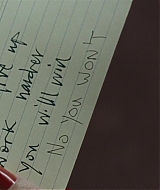 give up
work harder
you will win
No you won't